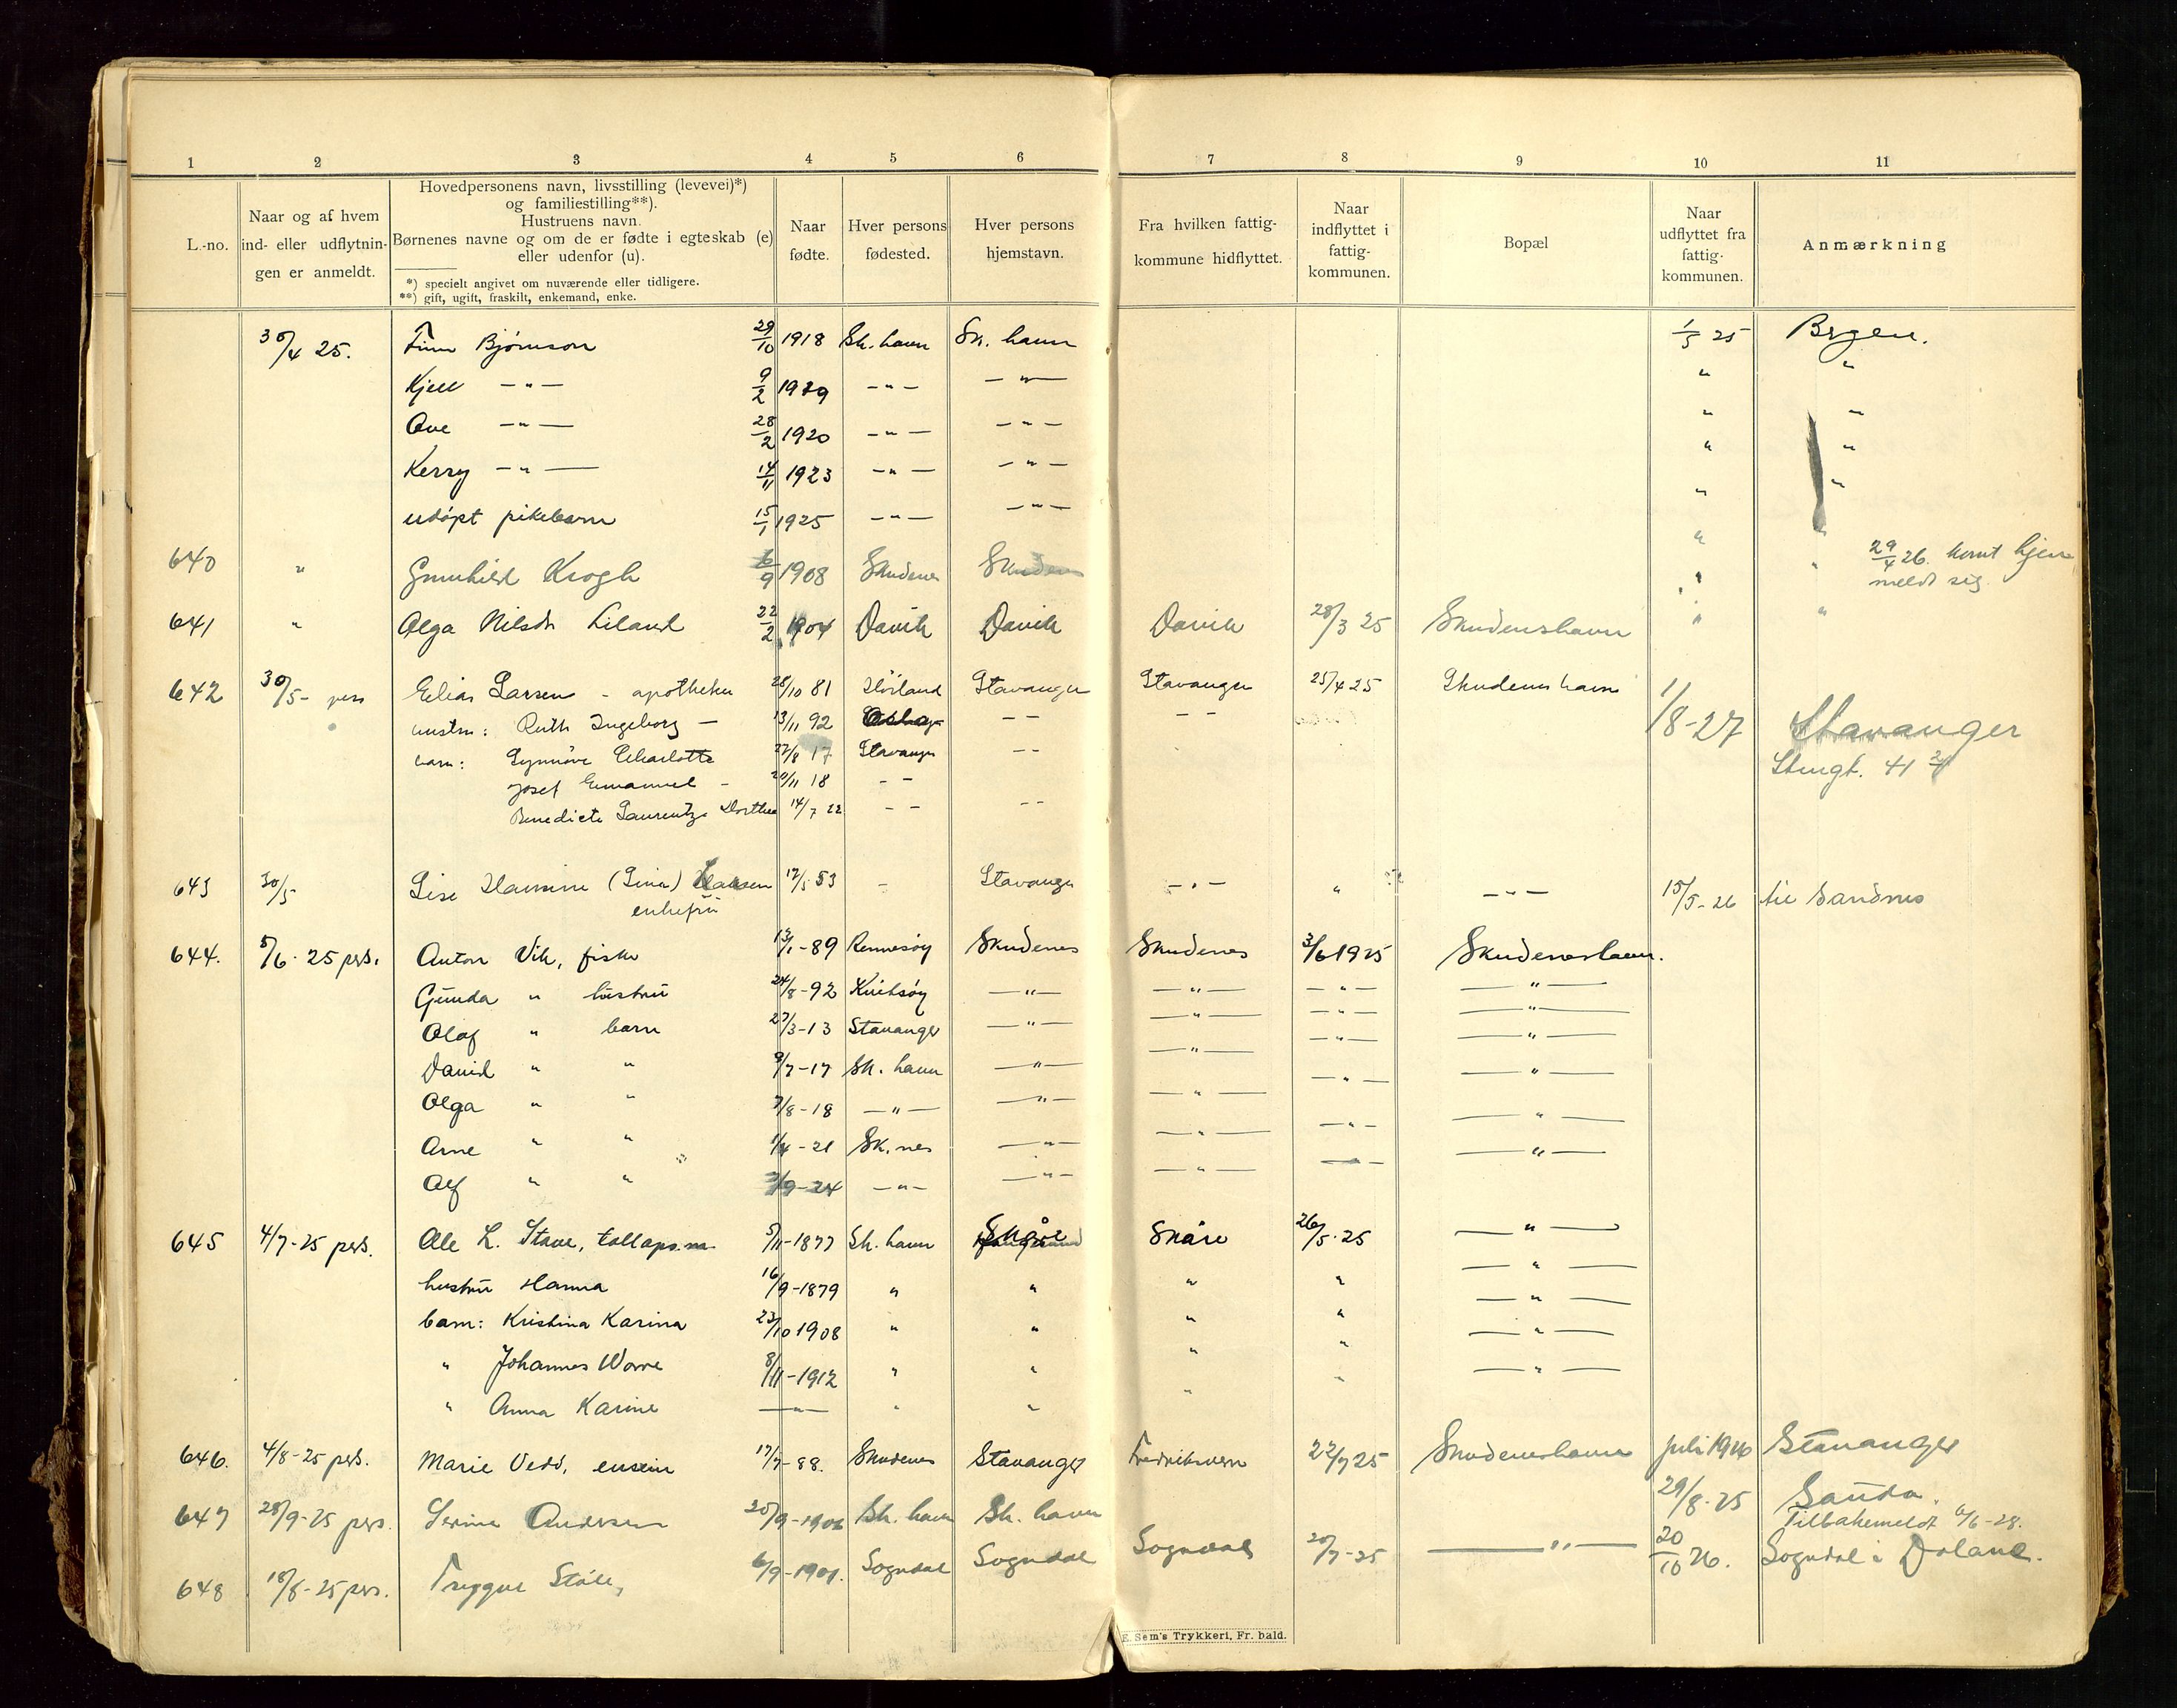 1 2 3 4 5 6 7 8 9 10 11
L.-no.
Naar og af hvem
ind- eller udflytnin-
gen er anmeldt.
Hovedpersonens navn, livsstilling (levevei)*)
og familiestilling**).
Hustruens navn.
Børnenes navne og om de er fødte i egteskab (e)
eller udenfor (u).
*) specielt angivet om nuværende eller tidligere.
**) gift, ugift, fraskilt, enkemand, enke.
Naar
fødte.
Hver persons
fødested.
Hver persons
hjemstavn.
Fra hvilken fattig-
kommune hidflyttet.
Naar
indflyttet i
fattig-
kommunen.
Bopæl
Naar
udflyttet fra
fattig-
kommunen.
Anmærkning
30/4 25. Finn Bjørnson 29/10 1918 Sk. havn Sk. havn 1/5 25 Bergen.
Kjell —"— 9/2 1929 —"— —"— " "
Ove —"— 28/2 1920 —"— —"— " "
Kerry —"— 14/11 1923 —"— —"— " "
udøpt pikebarn 15/1 1925 —"— —"— " "
640 " Gunhild Krogh 6/9 1908 Skudenes Skudenes " " 29/4 26. komt hjem
meldt sig.
641 " Olga Nilsdr Liland 22/2 1904 Davik Davik Davik 28/3 25 Skudeneshavn " "
642 30/5- pers Elias Larsen - apotheker 28/10 81 Høiland Stavanger Stavanger 25/4 25 Skudeneshavn 1/8-27 Stavanger
hustru: Ruth Ingeborg — 13/11 92 Oslo - - - -
barn: Synnöve Charlotte 22/8 17 Stavanger - - Stengt. 41
Josef Emanuel - 20/11 18 - -
Benedicte Laurentze Dorthea 14/7 22 - - - -
643 30/5 Lise Hansine (Sina) Hansen 17/5 53 - Stavanger -"- " —"— 15/5-26 til Sandnes
enkefru
644. 5/6-25 pers. Anton Vik, fisker 13/1-89 Rennesøy Skudenes Skudenes 3/6 1925 Skudeneshavn.
Gunda " hustru 24/8-92 Kvitsøy —"— —"— —"— —"—
Olaf " barn 27/3-13 Stavanger —"— —"— —"— —"—
David " " 9/7-17 Sk. havn —"— —"— —"— —"—
Olga " " 7/8-18 —"— —"— —"— —"— —"—
Arne " " 1/4-21 Sk.nes —"— —"— —"— —"—
Alf " " 3/9-24 —"— —"— —"— —"— —"—
645 4/7-25 pers. Ole L. Stave, tollops.m. 5/11-1877 Sk. havn Skåre Skåre 26/5-25 —"—
hustru Hanna 16/9-1879 " " " " —"—
barn: Kristina Karina 23/10 1908 " " " " —"—
" Johannes Worre 8/11-1912 " " " " —"—
" Anna Karine —"— " " " " —"—
646. 4/8-25 pers. Marie Vedd, enslig 17/7-88. Skudenes Stavanger Fredriksvern 22/7 25 Skudeneshavn juli 1926 Stavanger
647 28/9-25 pers. Serine Andersen 20/9-1906 Sk. havn Sk. havn 29/8-25 Sauda.
Tilbakemeldt 6/6-28.
648 18/8-25 pers. Tryggve Ståle, 6/9-1901. Sogndal Sogndal Sogndal 20/7-25 —"— 20/10 26. Sogndal i Dalane.
E. Sem's Trykkeri, Fr. hald.